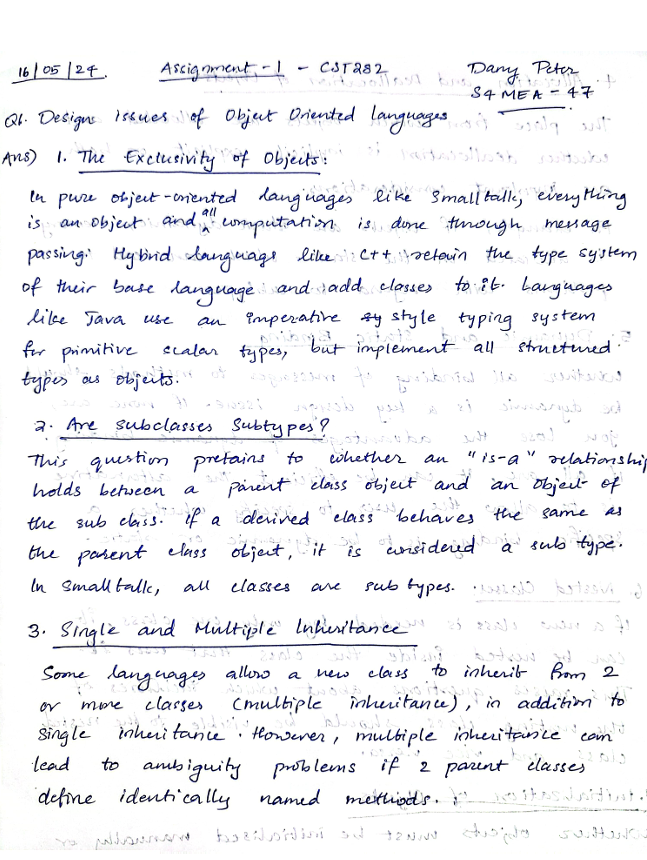 16/05/24. Assignment - 1 - CST282 Dany Peter
S4 MEA - 47
Q1. Designs Issues of Object Oriented languages
Ans) 1. The Exclusivity of Objects:
In pure object-oriented languages like Smalltalk, everything
is an object and all computation is done through message
passing. Hybrid language like C++ retain the type system
of their base language and add classes to it. Languages
like Java use an imperative sy style typing system
for primitive scalar types, but implement all structured
types as objects.
2. Are subclasses Subtypes?
This question pretains to whether an "is-a" relationship
holds between a parent class object and an object of
the sub class. If a derived class behaves the same as
the parent class object, it is considered a sub type.
In Smalltalk, all classes are sub types.
3. Single and Multiple Inheritance
Some languages allow a new class to inherit from 2
or more classes (multiple inheritance), in addition to
single inheritance. However, multiple inheritance can
lead to ambiguity problems if 2 parent classes
define identically named methods.